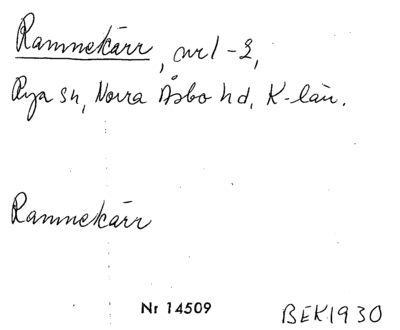 Ramnekärr, nr 1-2,
Rya sn, Norra Åsbo hd, K-län.
Ramnekärr
Nr 14509
BEK1930